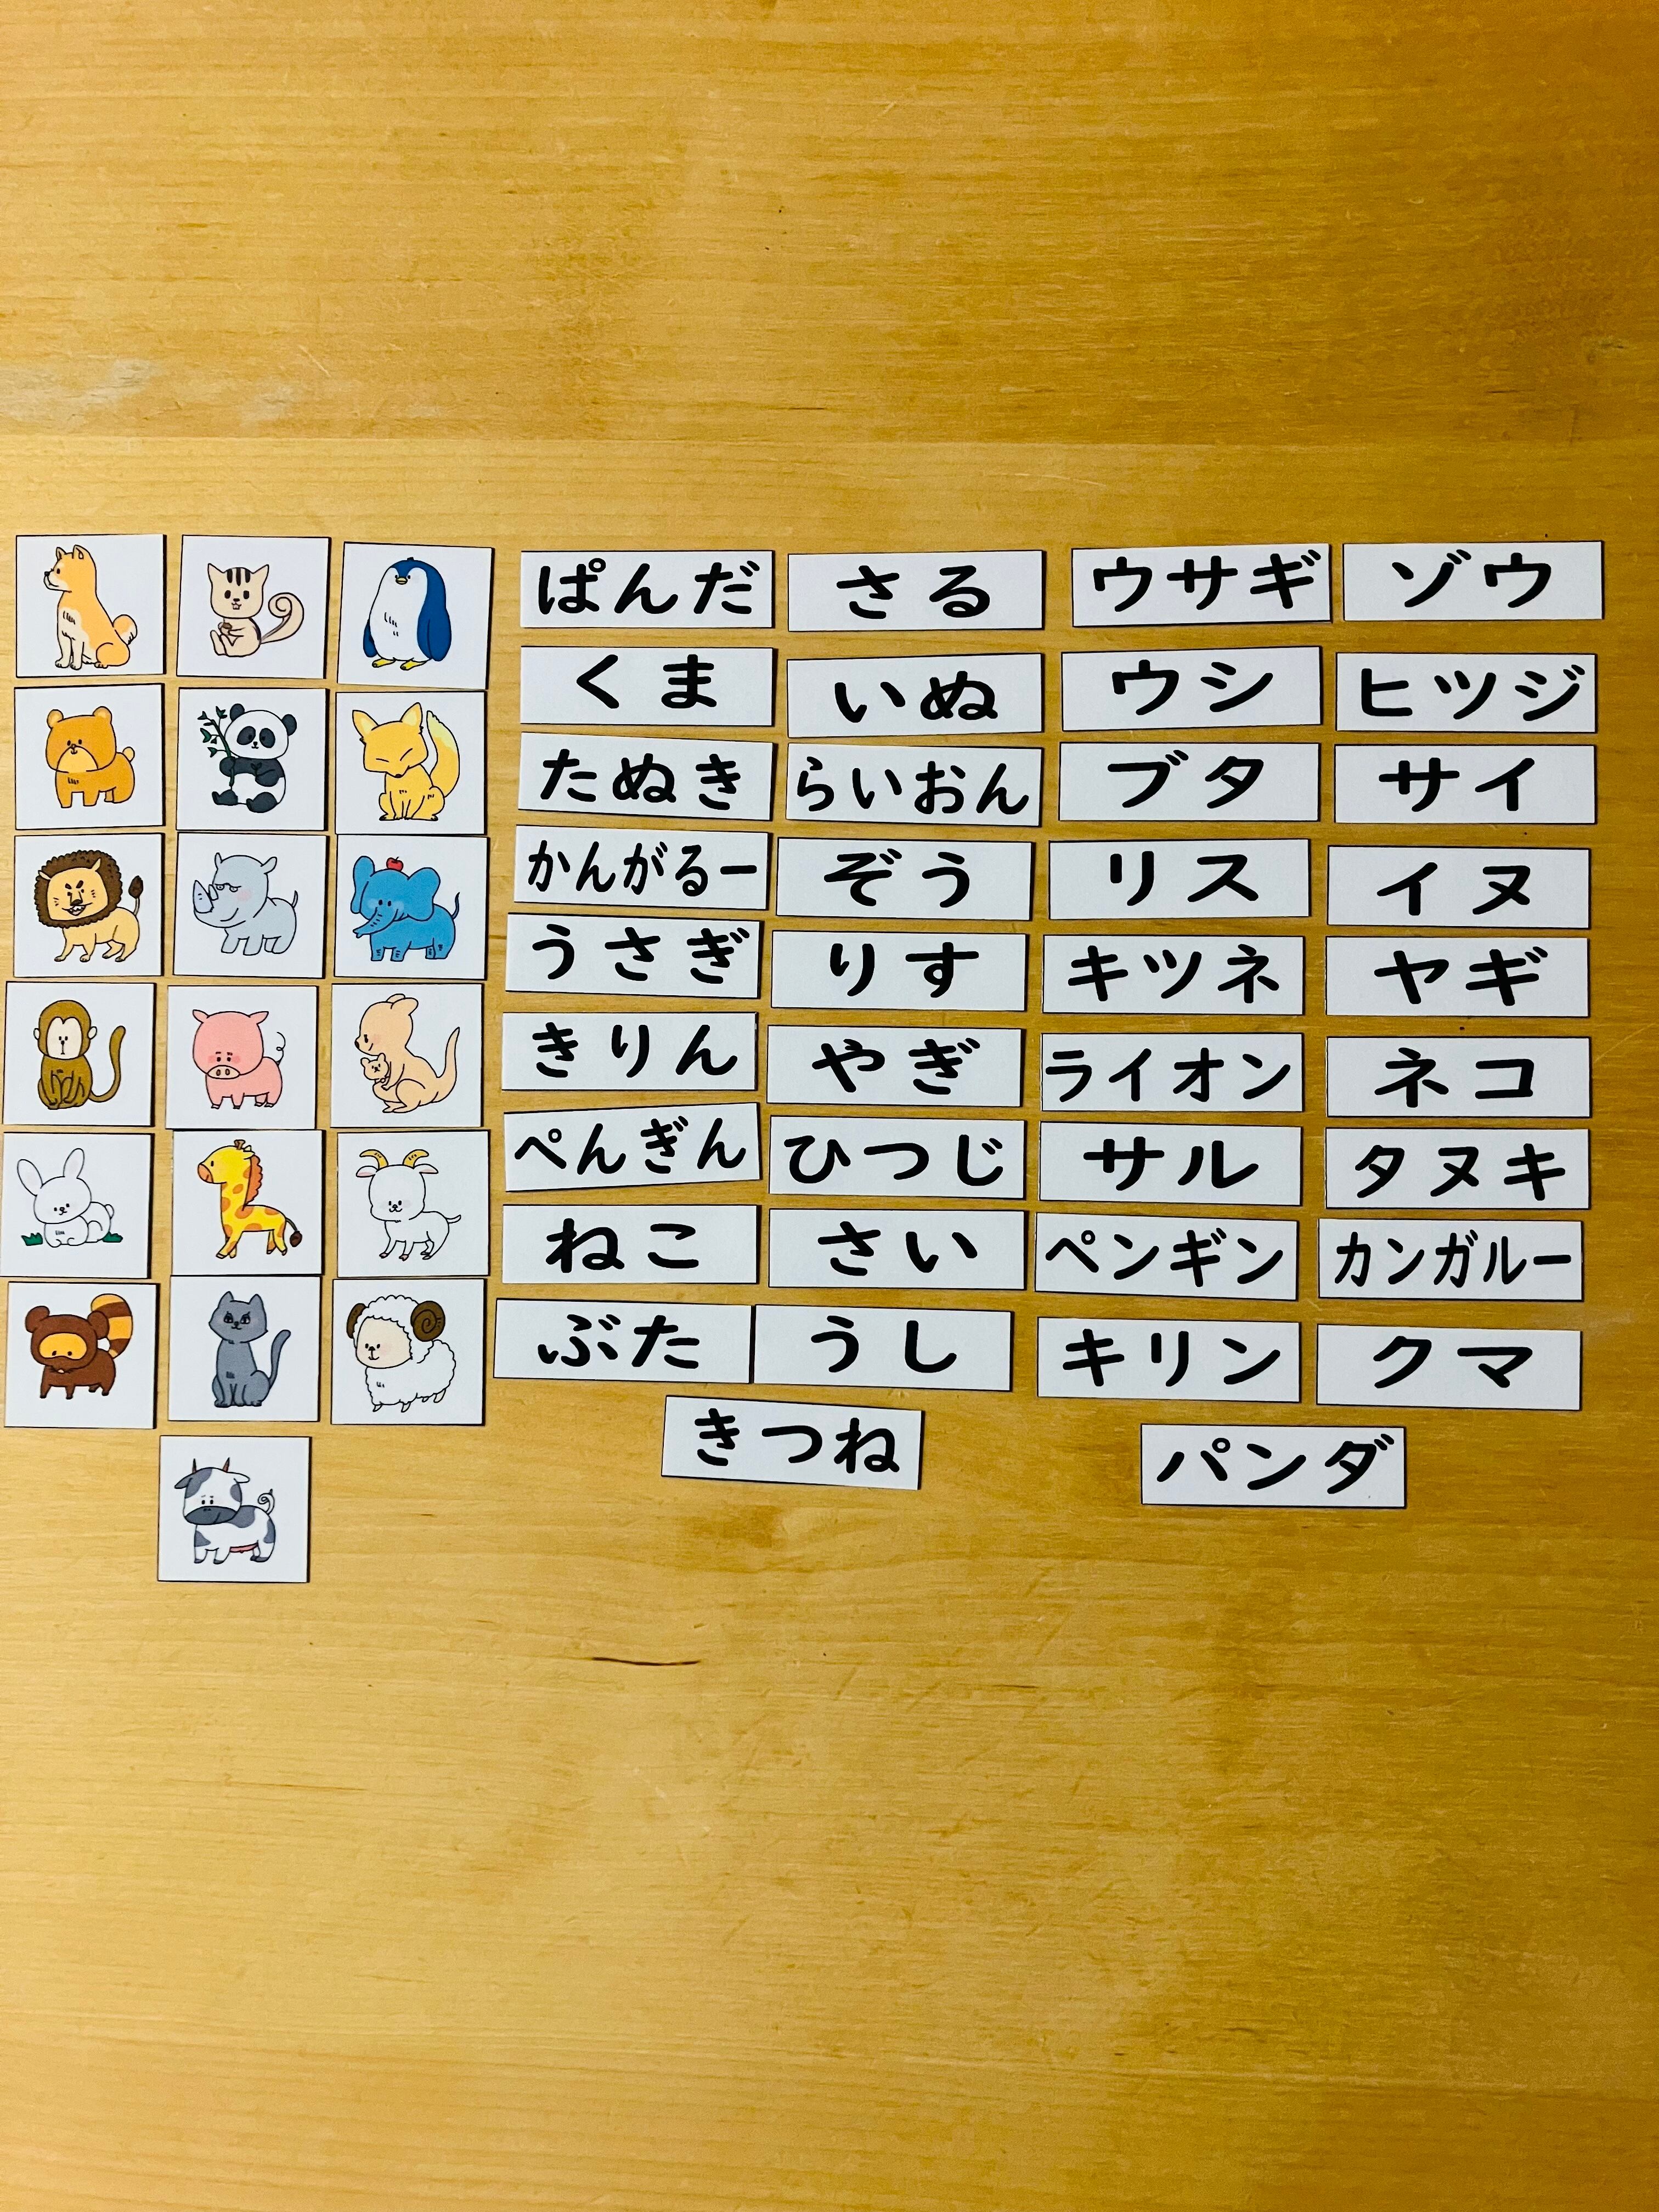 ぱんだ さる ウサギ ゾウ
くま いぬ ウシ ヒツジ
たぬき らいおん ブタ サイ
かんがるー ぞう リス イヌ
うさぎ りす キツネ ヤギ
きりん やぎ ライオン ネコ
ぺんぎん ひつじ サル タヌキ
ねこ さい ペンギン カンガルー
ぶた うし キリン クマ
きつね パンダ